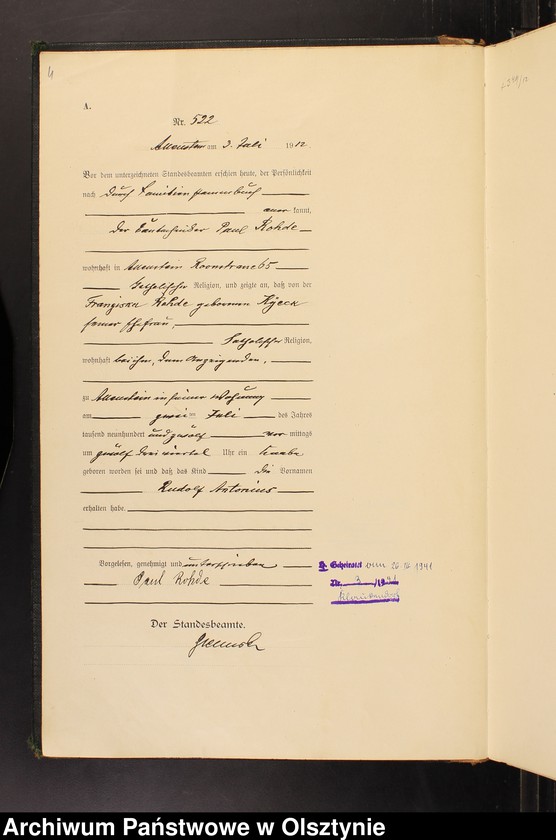 4
A.
Nr. 522
Allenstein am 3. Juli 1912.
Vor dem unterzeichneten Standesbeamten erschien heute, der Persönlichkeit
nach durch Familienstammbuch
aner kannt,
der Paul Rohde
wohnhaft in Allenstein Roonstrasse 65
katholischer Religion, und zeigte an, daß von der
Franziska Rohde geborenen
seiner Ehefrau,
katholischer Religion,
wohnhaft bei ihm, dem Anzeigenden,
zu Allenstein in seiner Wohnung
am zwei ten Juli des Jahres
tausend neunhundert und zwölf vor mittags
um zwölf drei viertel Uhr ein Knabe
geboren worden sei und daß das Kind die Vornamen
Rudolf Antonius
erhalten habe.
Vorgelesen, genehmigt und unterschrieben
Paul Rohde
Der Standesbeamte.
Geheiratet am 26. 1941
Nr. 3 /1941
Archiwum Państwowe w Olsztynie